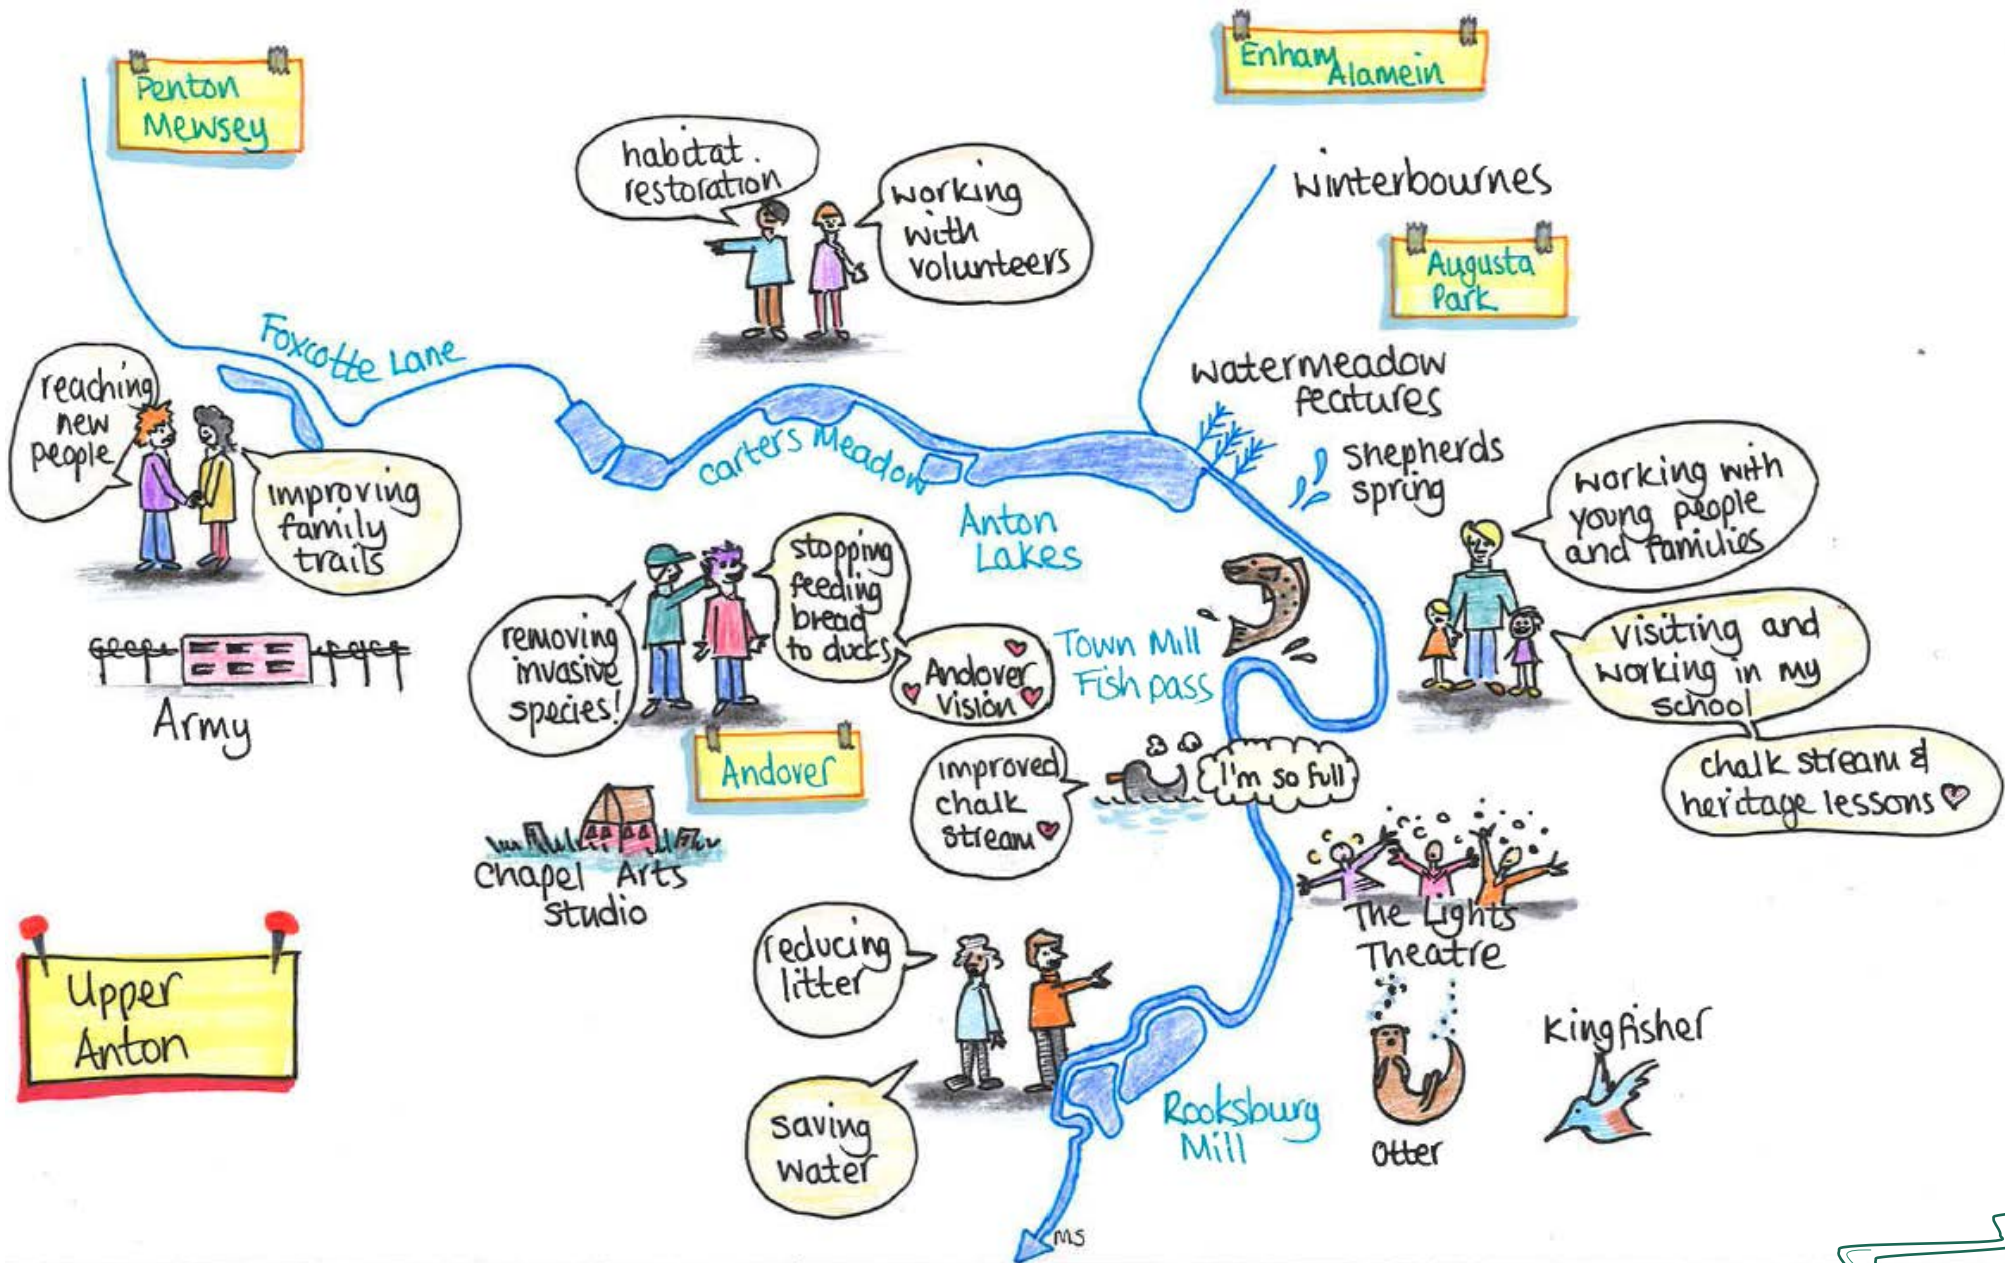 Penton
Mewsey
Enham
Alamein
habitat
restoration
working
with
volunteers
winterbournes
Augusta
Park
Foxcotte Lane
reaching
new
people
improving
family
trails
Carters Meadow
watermeadow
features
Shepherds
spring
Anton
Lakes
working with
young people
and families
visiting and
working in my
school
chalk stream &
heritage lessons
removing
invasive
species!
stopping
feeding
bread
to ducks
Andover
Vision
Town Mill
Fish pass
Army
Andover
improved
chalk
stream
I'm so full
Chapel Arts
Studio
The Lights
Theatre
reducing
litter
Upper
Anton
saving
water
Rooksbury
Mill
Otter
Kingfisher
MS